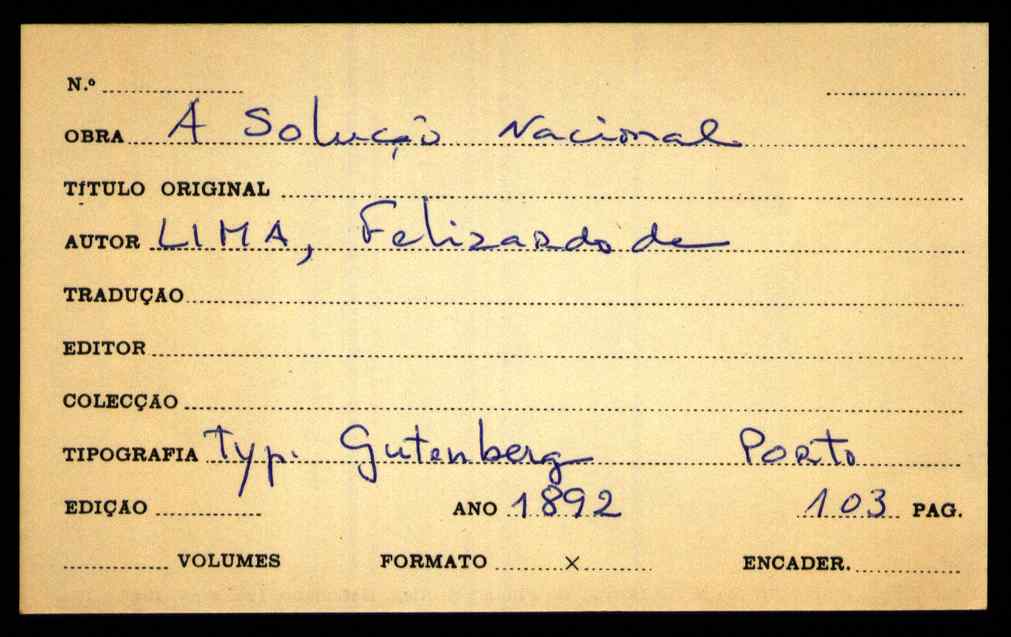 N.º
OBRA A Solução Nacional
TÍTULO ORIGINAL
AUTOR LIMA, Felizardo de
TRADUÇÃO
EDITOR
COLECÇÃO
TIPOGRAFIA Typ. Gutenberg Porto
EDIÇÃO ANO 1892 103 PAG.
VOLUMES FORMATO × ENCADER.